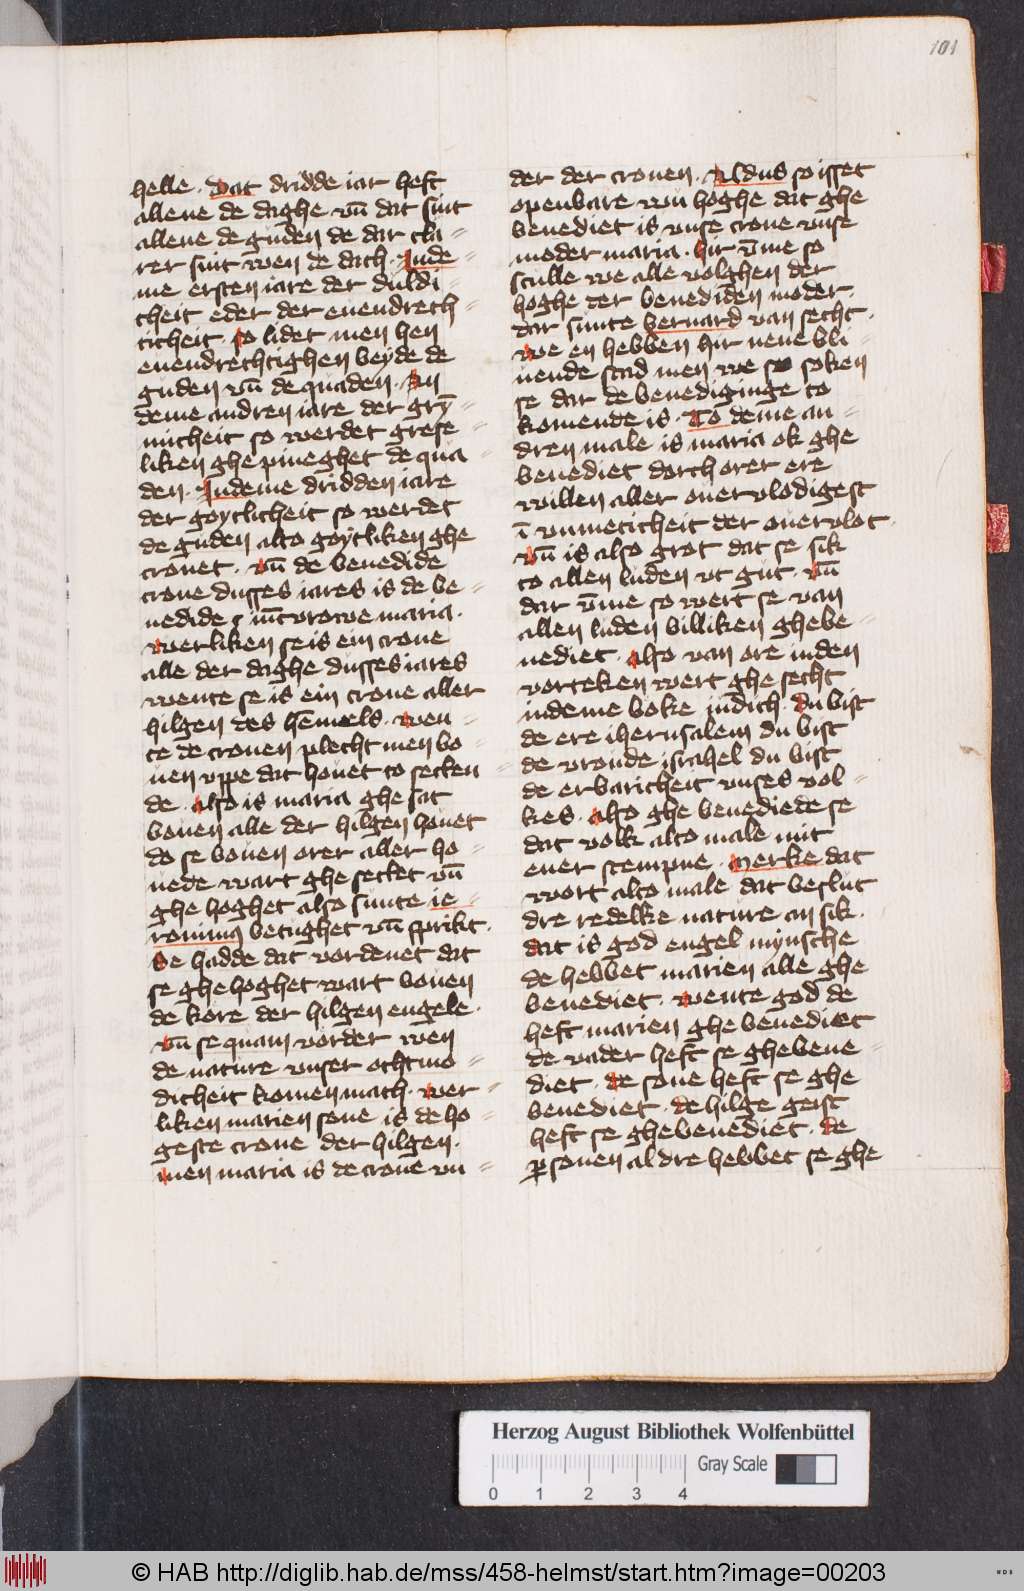 101
helle · Dat dridde iar heft
allene de daghe vn̄ dat sint
allene de guden de dar cla=
rer sint wen de dach · Inde=
me ersten iare der duldi=
cheit eder der euendrech=
ticheit so lidet men hen
euendrechtighen beyde de
guden vn̄ de quaden · An
deme andren iare der gry̅=
micheit so werdet grese=
liken ghe pineghet de qua=
den · Indeme dridden iare
der goytlicheit so werdet
de guden alto goytliken ghe
cronet · vn̄ de benedide
crone dusses iares is de be=
nedide iūcvrowe maria ·
werliken se is ein crone
alle der daghe dusses iares
wente se is ein crone aller
hilgen des hēmels · wen=
te de cronen plecht men bo=
uen vppe dat houet to setten
de · also is maria ghe sat
bouen alle der hilgen houet
do se bouen orer aller ho=
uede wart ghe settet vn̄
ghe hoghet also sunte ie=
ronimus betughet vn̄ sprikt ·
Se hadde dat vordenet dat
se ghe hoghet wart bouen
de kore der hilgen engele ·
vn̄ se quam vorder wen
de nature vnser othmo=
dicheit komen mach · wer=
liken marien sone is de ho=
geste crone der hilgen ·
men maria is de crone vn=
der der cronen · Aldus so isset
openbare wu hoghe dat ghe
benediet is vnse crone vnse
moder maria · hir v̄me so
sculle we alle volghen der
hoghe der benediden moder
dar sunte bernard van secht ·
we en hebben hir nene bli=
uende stad men we so soken
se dar de benediginge to
komende is · To deme an=
dren male is maria ok ghe
benediet dorch orer ere
willen aller ouervlodigest
ī vnmeticheit der ouervlot ·
vn̄ is also grot dat se sik
to allen luden vt gut · vn̄
dar v̄me so wert se van
allen luden billiken ghebe=
nediet · also van ore inden
vorteken wert ghe secht
indeme boke iudich · du bist
de ere iherusalem du bist
de vroude israhel du bist
de erbaricheit vnses vol=
kes · also ghe benediede se
dat volk alto male mit
ener stempne · Merke dat
wort alto male dat beslut
dre redelke nature an sik ·
dat is god engel mynsche
de hebbet marien alle ghe
benediet · wente god de
heft marien ghe benediet
de vader heft se ghebene=
diet · de sone heft se ghe
benediet · de hilge geist
heft se ghebenediet · de
ꝑsonen al dre hebbet se ghe
Herzog August Bibliothek Wolfenbüttel
Gray Scale
0 1 2 3 4
© HAB http://diglib.hab.de/mss/458-helmst/start.htm?image=00203